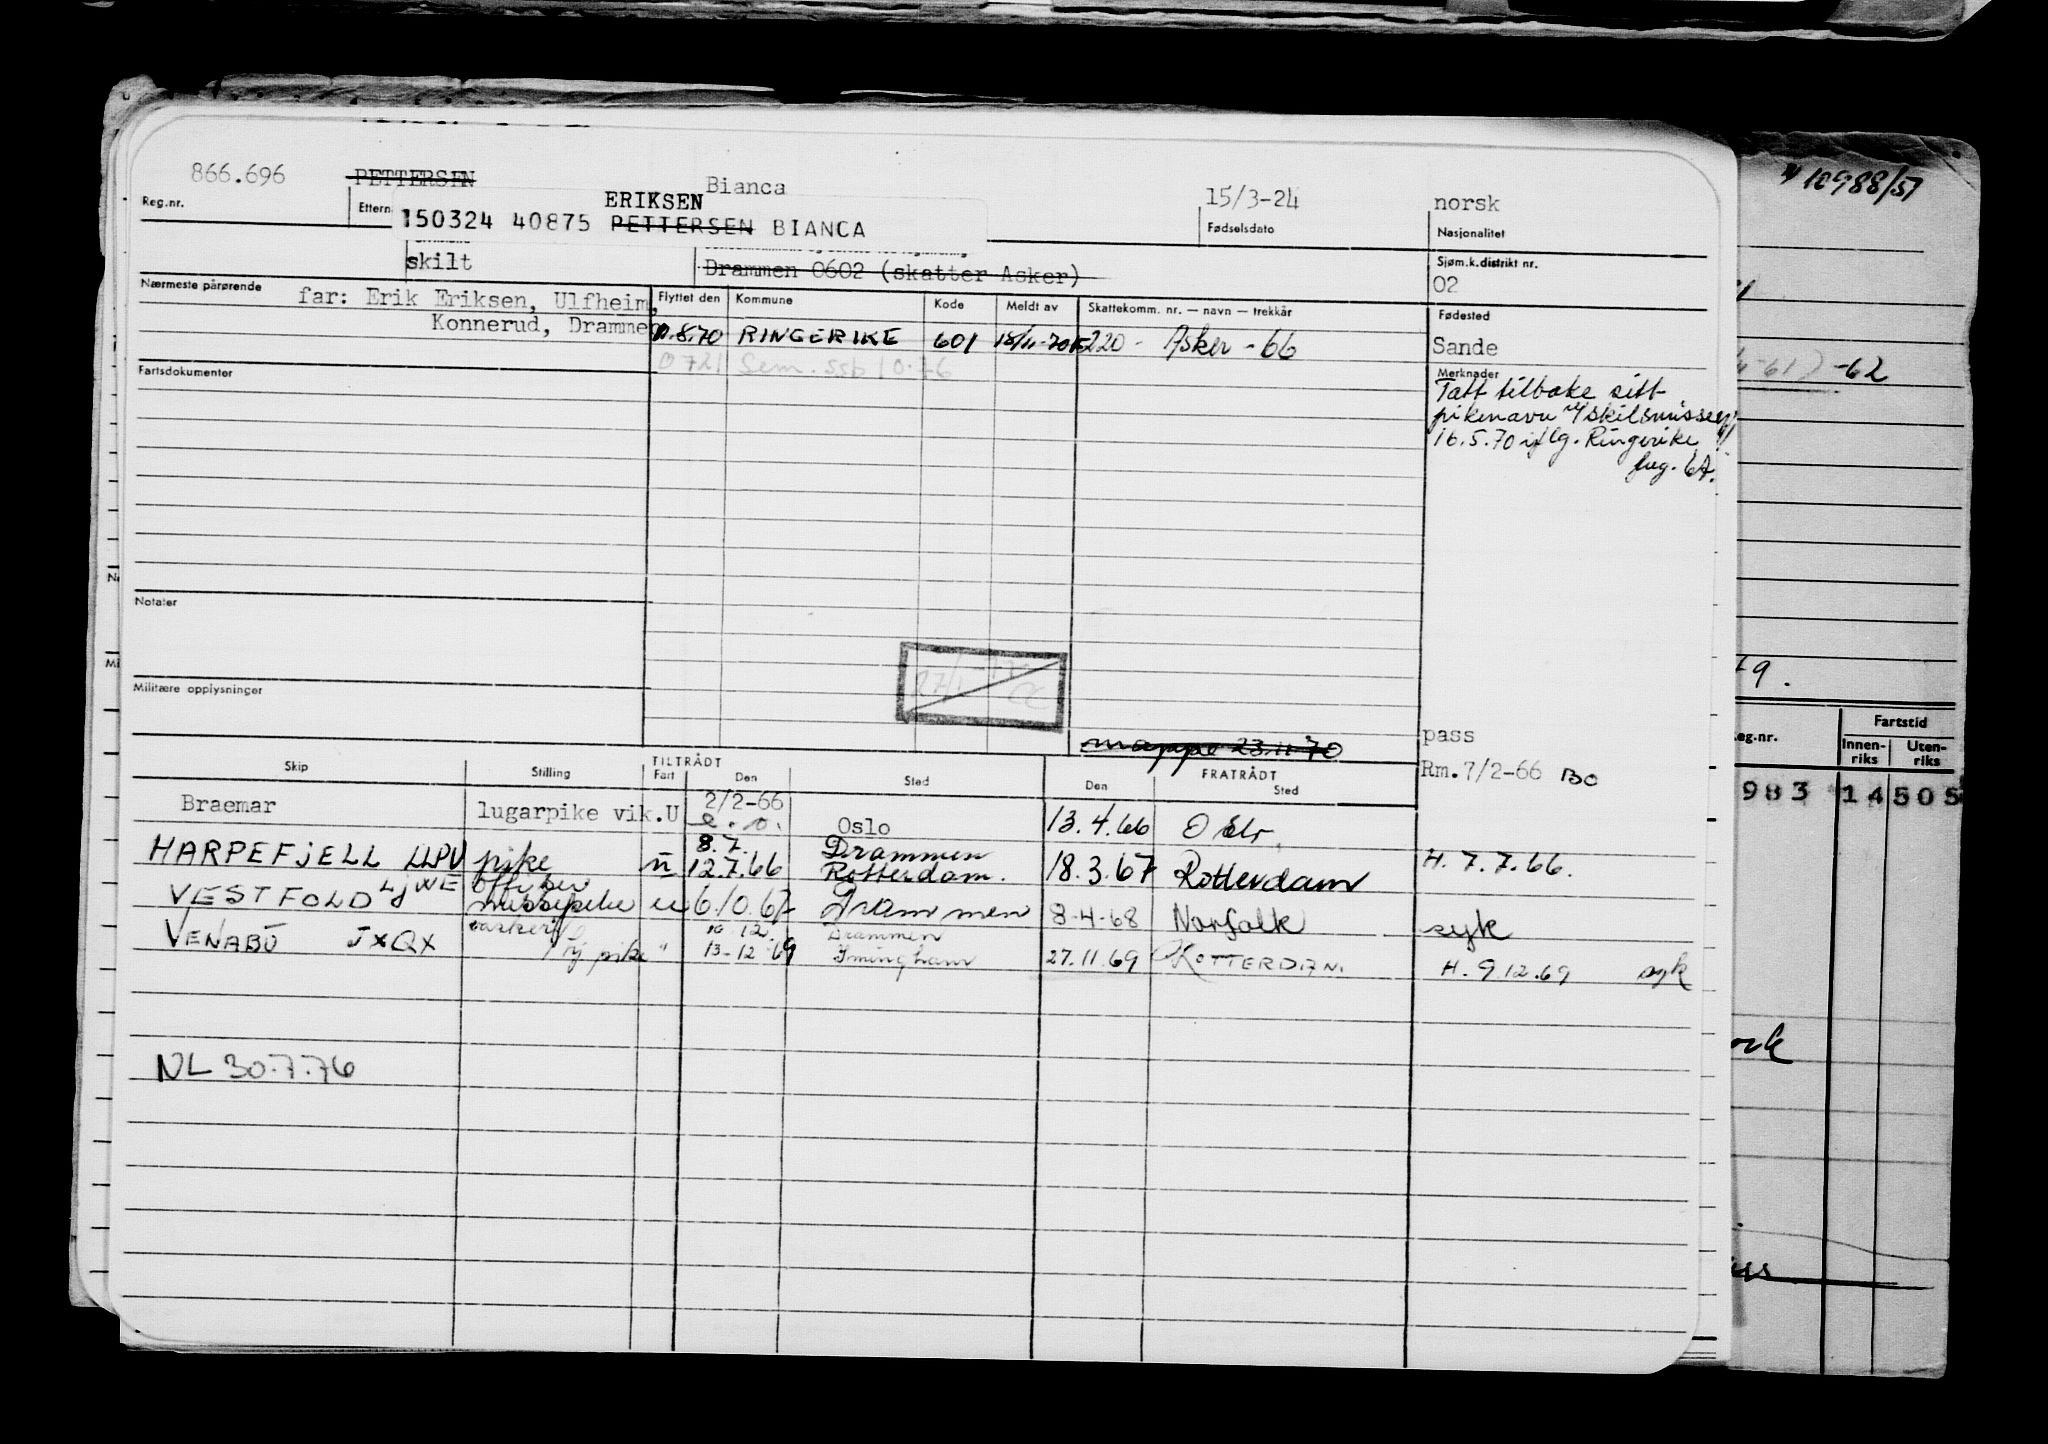 866.696 PETTERSEN Bianca 15/3-24 norsk
ERIKSEN
Reg.nr. Ettern 150324 40875 PETTERSEN BIANCA Fødselsdato Nasjonalitet
skilt Drammen 0602 (skatter Asker) Sjøm.k.distrikt nr.
02
Nærmeste pårørende far: Erik Eriksen, Ulfheim, Flyttet den Kommune Kode Meldt av Skattekomm. nr. — navn — trekkår Fødested
Konnerud, Drammen .8.70 RINGERIKE 601 220 - Asker - 66 Sande
0721 Sem. ssb 10.76
Fartsdokumenter Merknader
Tatt tilbake sitt
pikenavn v/skilsmissen
16.5.70 iflg. Ringerike
Notater
Militære opplysninger
mappe 23.11.70 pass
Rm.7/2-66 BO
Skip Stilling TILTRÅDT Fart Den Sted FRATRÅDT Den Sted
Braemar lugarpike vik.U 2/2-66 e.o. Oslo 13.4.66 Oslo
HARPEFJELL LLPV pike u 8.7. Drammen
12.7.66 Rotterdam. 18.3.67 Rotterdam H. 7.7.66.
VESTFOLD LJWE offiser
messepike u 6.10.67 Drammen 8-4-68 Norfolk syk
VENABU JXQX vasker 10.12. Drammen
pike " 13-12 69 Imingham 27.11.69 ROTTERDAM. H. 9.12.69 syk
NL 30.7.76
10988/51
-61) -62
79.
eg.nr. Fartstid
Innen-
riks Uten-
riks
983 14 505